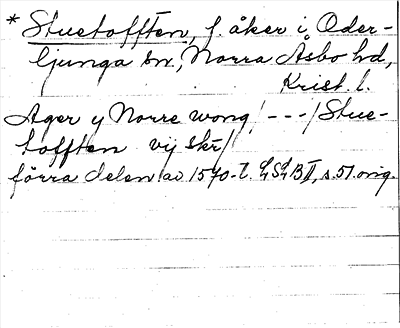 * Stuetofften, f. åker i Oder-
ljunga sn., Norra Åsbo hd,
Krist. l.
Ager y Norre wong / - - - / Stue-
tofften vij skr /
förra delen av 1570-t. LSLB II, s. 51. orig.